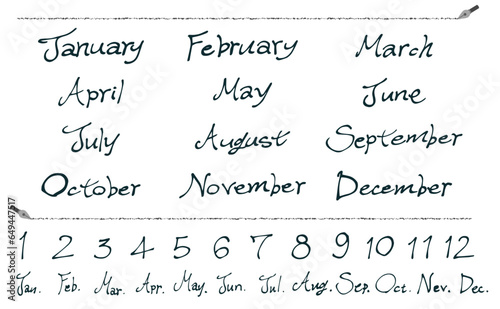 January February March
April May June
July August September
October November December
1 2 3 4 5 6 7 8 9 10 11 12
Jan. Feb. Mar. Apr. May. Jun. Jul. Aug. Sep. Oct. Nov. Dec.
Adobe Stock | #649447517